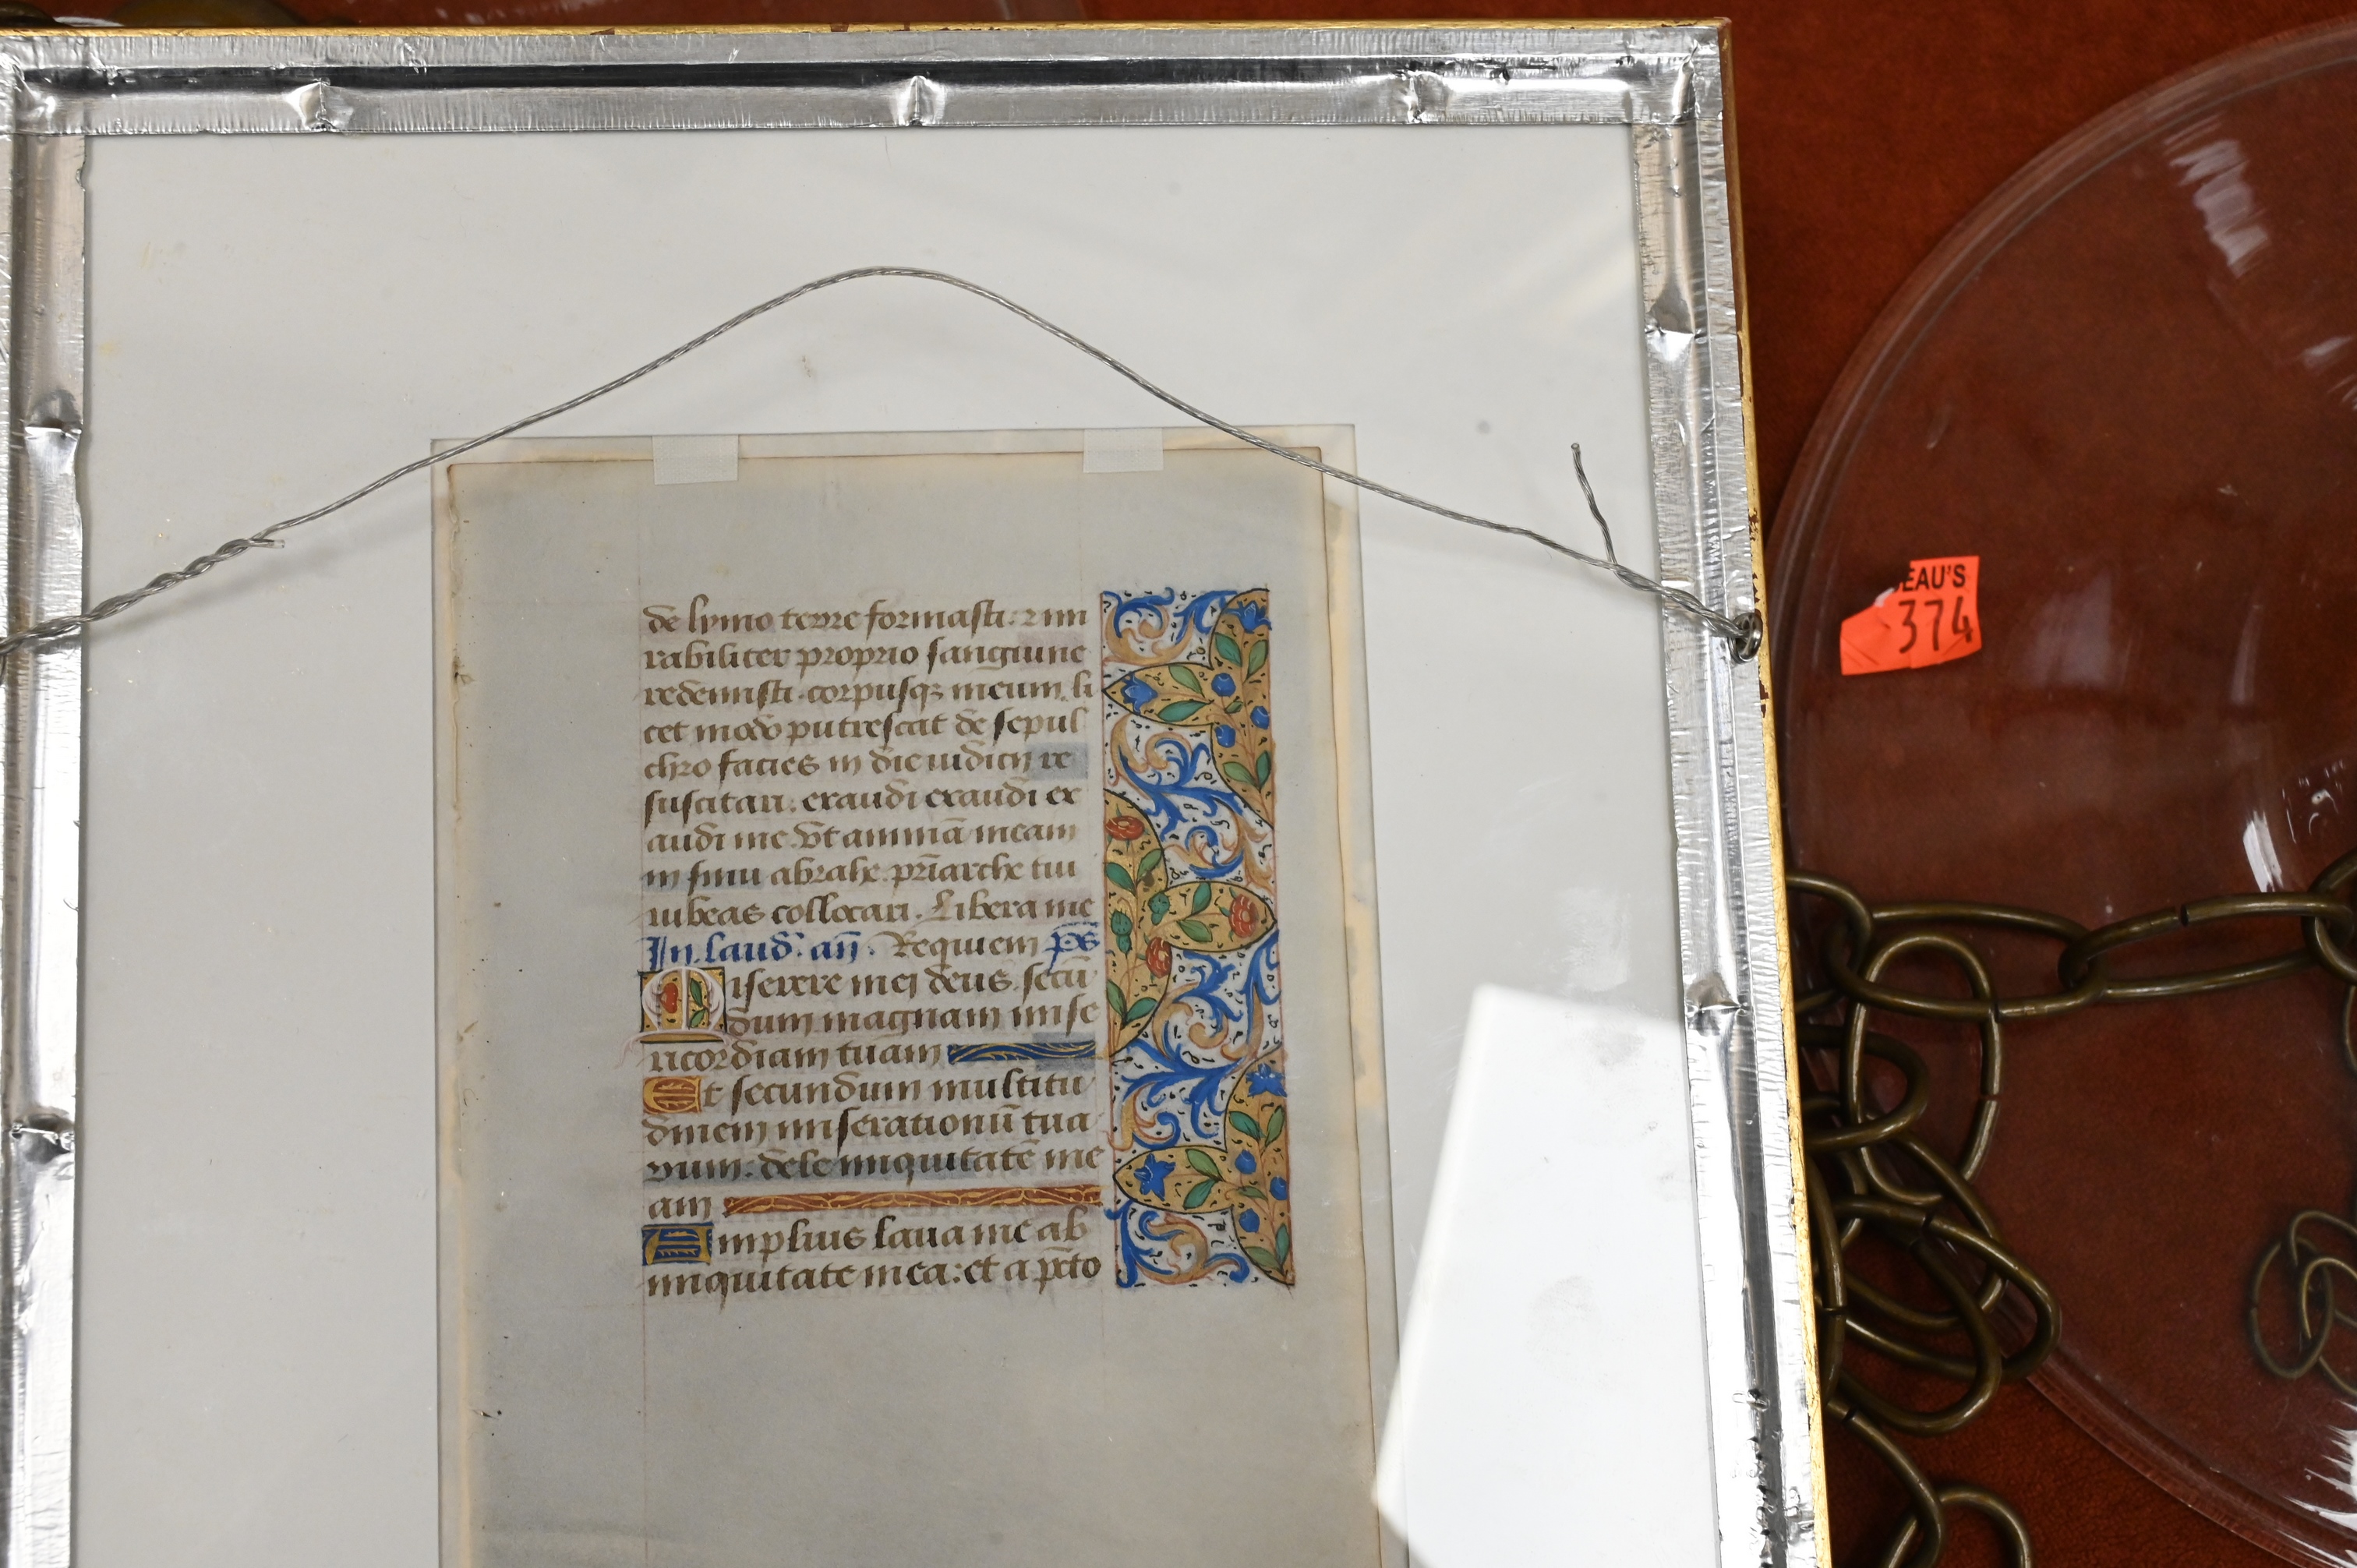 de lymo terre formasti: ⁊ mi
rabiliter proprio sanguine
redemisti. corpusqꝫ meum li
cet modo putrescat de sepul
chro facies in die iudicij re
suscitari: exaudi exaudi ex
audi me. Vt animā meam
in sinu abrahe pr̄iarche tui
iubeas collocari. Libera me
In laud. an̄. Requiem p̄s
Miserere mei deus. secū
dum magnam mise
ricordiam tuam
Et secundum multitu
dinem miserationū tua
rum: dele iniquitatē me
am
Amplius laua me ab
iniquitate mea: et a pc̄to
EAU'S
374